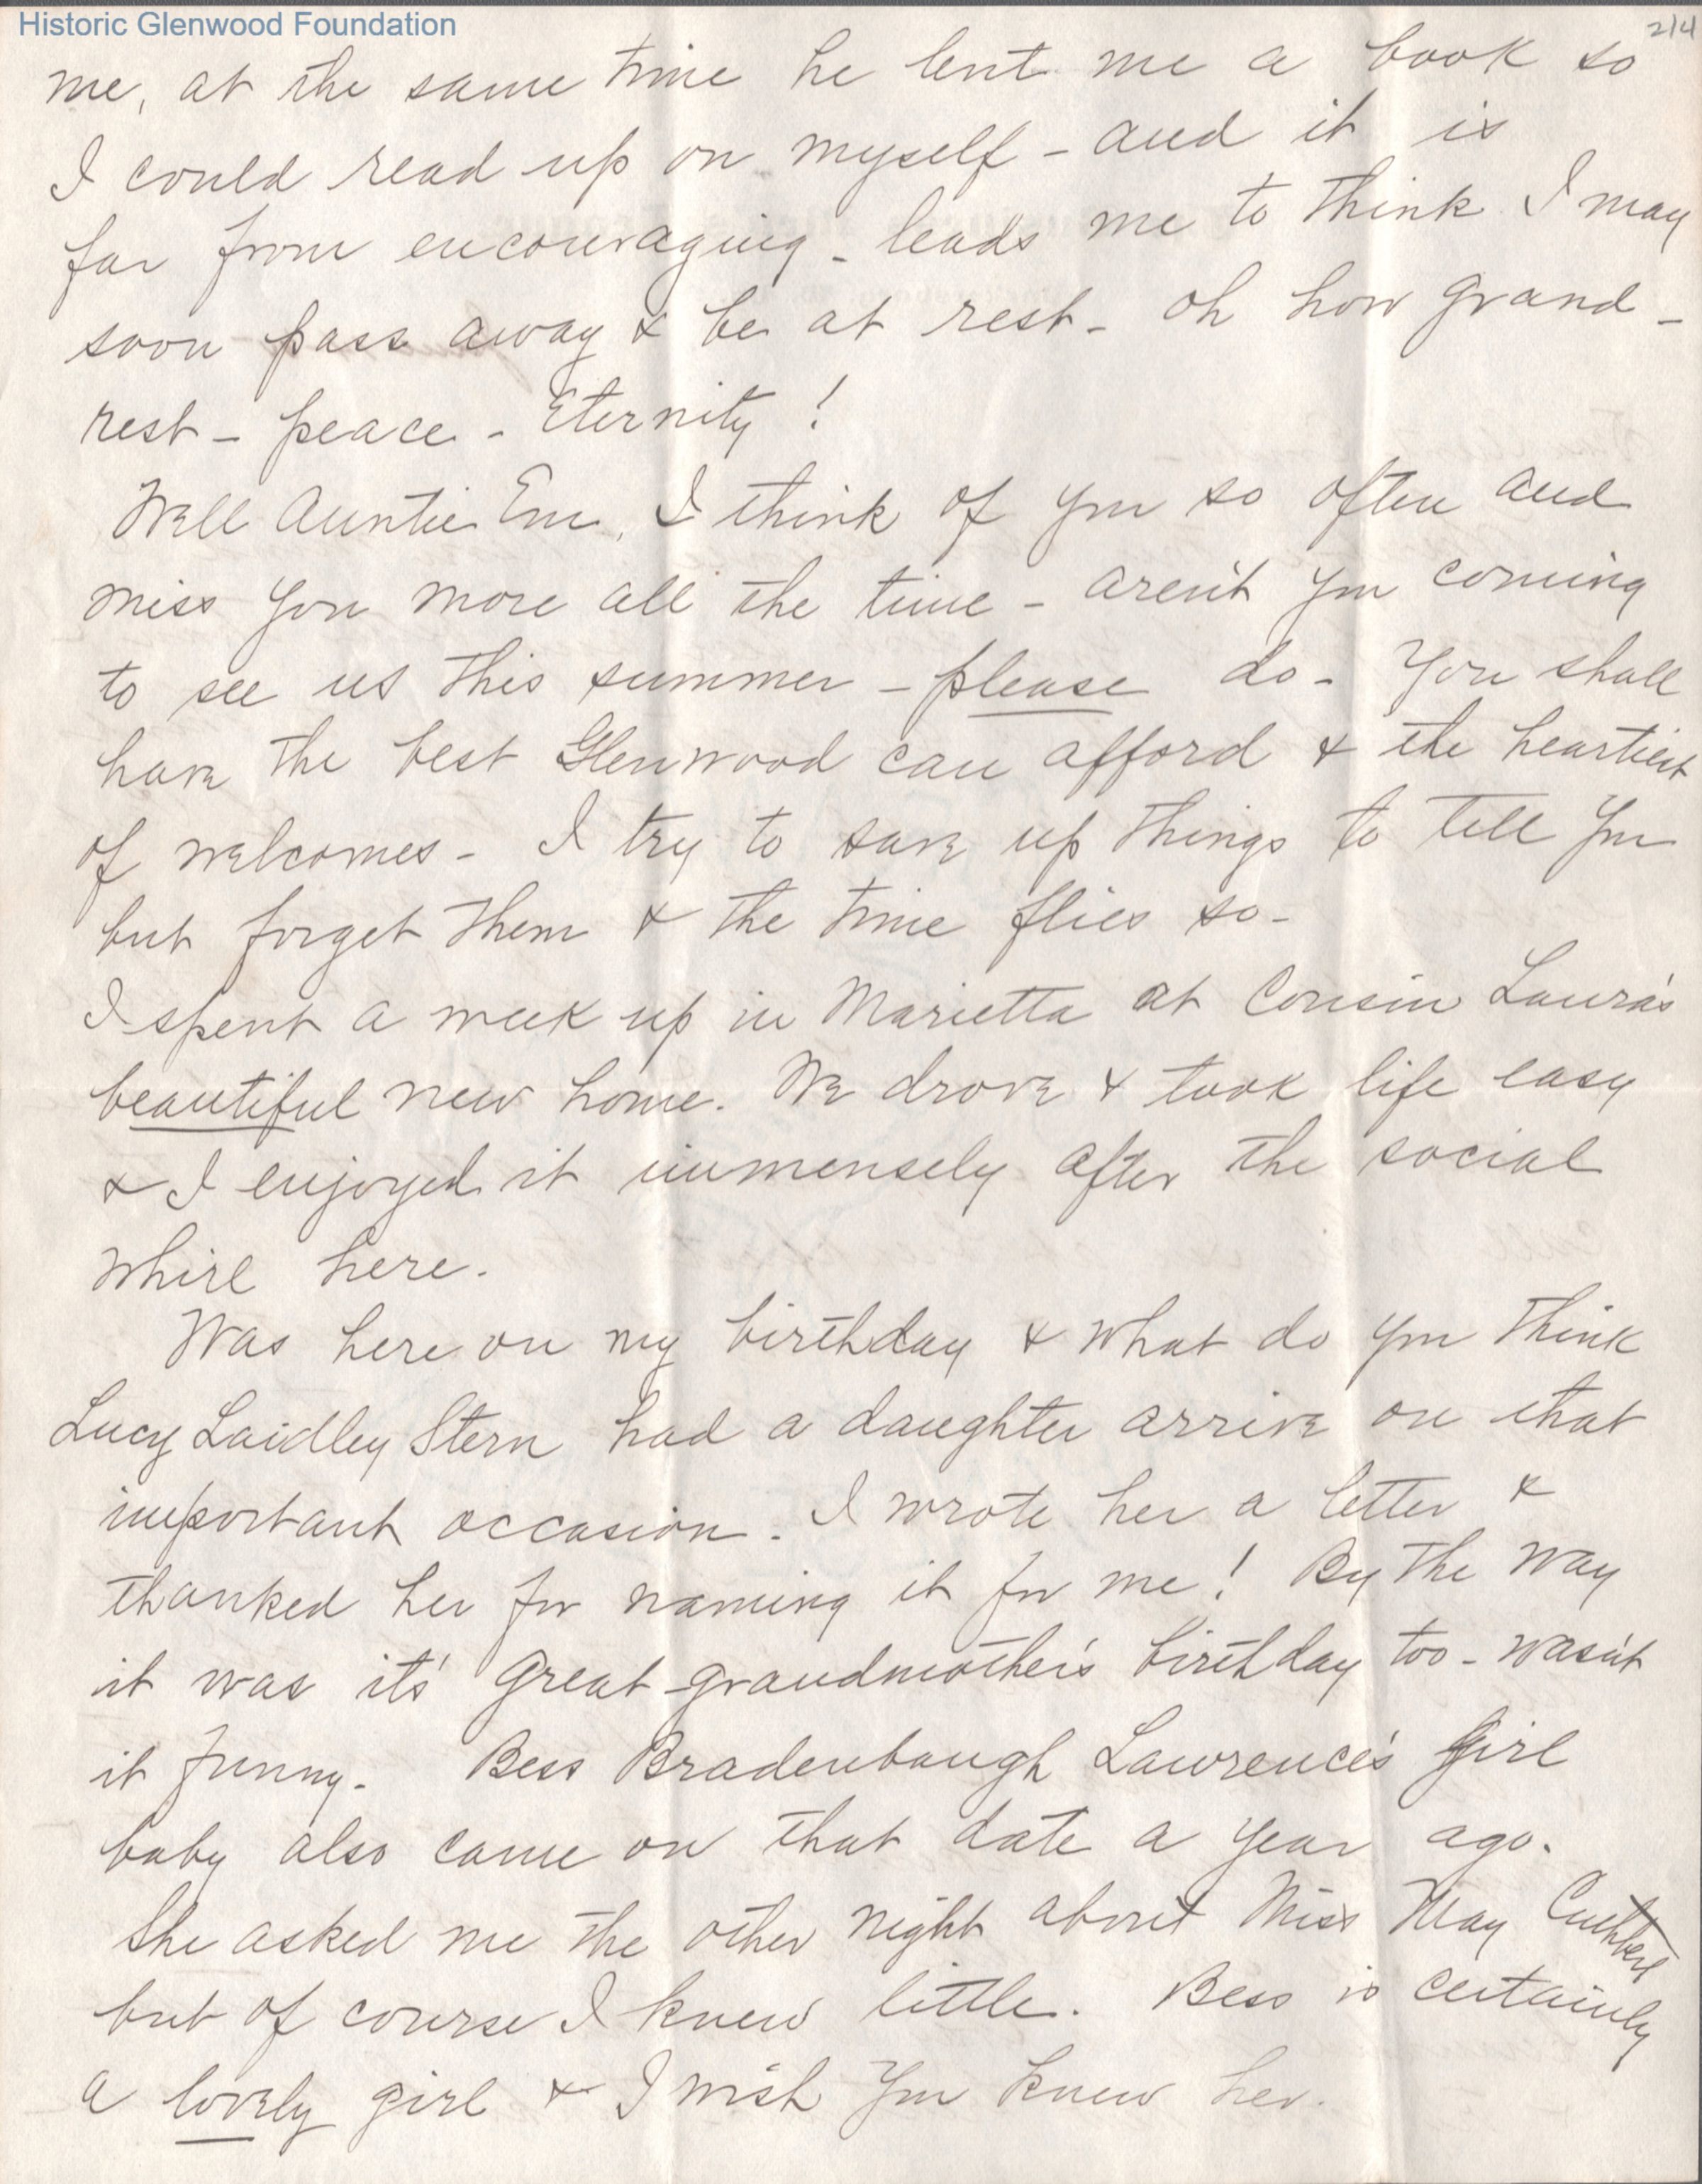 Historic Glenwood Foundation
2/4
me, at the same time he lent me a book so
I could read up on myself - and it is
far from encouraging - leads me to think I may
soon pass away & be at rest - oh how grand -
rest - peace - Eternity !
Well Auntie Em, I think of you so often and
miss you more all the time - aren't you coming
to see us this summer - please do - You shall
have the best Glenwood can afford & the heartiest
of welcomes - I try to save up things to tell you
but forget them & the time flies so -
I spent a week up in Marietta at Cousin Laura's
beautiful new home. We drove & took life easy
& I enjoyed it immensely after the social
whirl here.
Was here on my birthday & what do you think
Lucy Laidley Stern had a daughter arrive on that
important occasion. I wrote her a letter &
thanked her for naming it for me ! By the way
it was it's great-grandmother's birthday too - wasn't
it funny. Bess Bradenbaugh Lawrence's girl
baby also came on that date a year ago.
She asked me the other night about Miss May Cuthbert
but of course I knew little. Bess is certainly
a lovely girl & I wish you knew her.